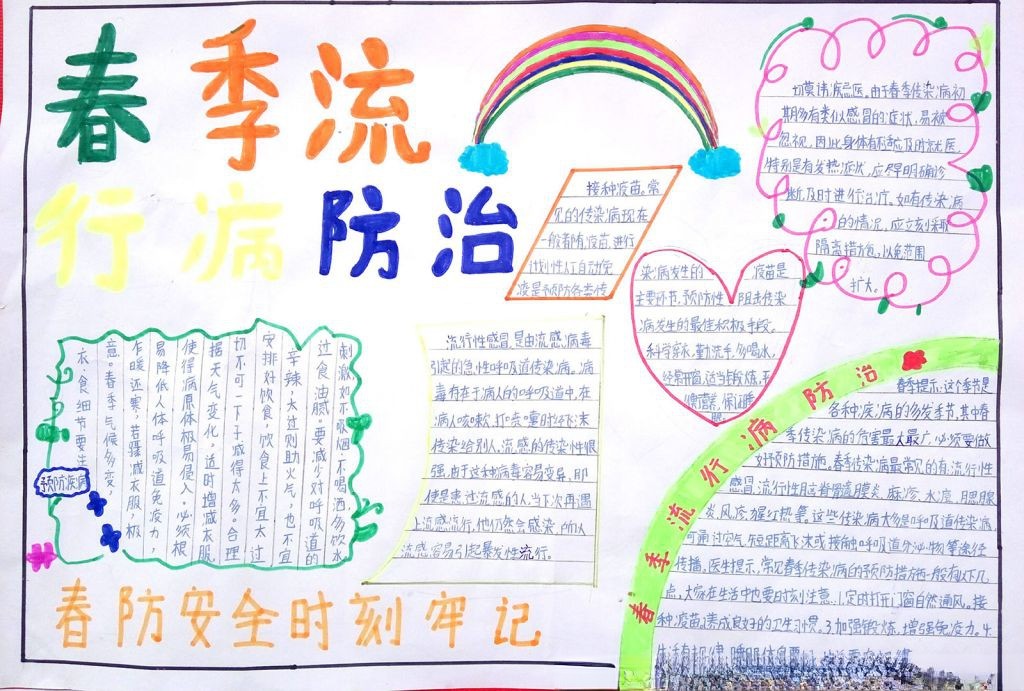 春季流
行病防治
切莫讳疾忌医。由于春季传染病初
期多有类似感冒的症状,易被
忽视,因此身体有不适应及时就医,
特别是有发热症状,应尽早明确诊
断,及时进行治疗。如有传染病
的情况,应立刻采取
隔离措施,以免范围
扩大。
接种疫苗。常
见的传染病现在
一般都有疫苗,进行
计划性人工自动免
疫是预防各类传
染病发生的
主要环节,预防性
疫苗是
阻击传染
病发生的最佳积极手段。
科学穿衣,勤洗手,多喝水,
经常开窗,适当锻炼,
刺激如不吸烟、不喝酒,多饮水
过食油腻。要减少对呼吸道的
辛辣,太过则助火气,也不宜
安排好饮食,饮食上不宜太过
切不可一下子减得太多。合理
据天气变化,适时增减衣服
使得病原体极易侵入。必须根
易降低人体呼吸道免疫力,
乍暖还寒,若骤减衣服,极
意。春季气候多变,
衣、食细节要注
预防疾病
流行性感冒,是由流感病毒
引起的急性呼吸道传染病。病
毒存在于病人的呼吸道中,在
病人咳嗽、打喷嚏时经飞沫
传染给别人。流感的传染性很
强,由于这种病毒容易变异,即
使是患过流感的人,当下次再遇
上流感流行,他仍然会感染,所以
流感容易引起暴发性流行。
春季流行病防治
春季提示:这个季节是
各种疾病的多发季,其中春
季传染病的危害最大最广,必须要做
好预防措施。春季传染病最常见的有:流行性
感冒、流行性脑脊髓膜炎、麻疹、水痘、腮腺
炎、风疹、猩红热等。这些传染病大多是呼吸道传染病,
可通过空气、短距离飞沫或接触呼吸道分泌物等途径
传播。医生提示,常见春季传染病的预防措施一般有以下几
点,大家在生活中也要时刻注意:1.定时打开门窗自然通风。接
种疫苗。2.养成良好的卫生习惯。3.加强锻炼,增强免疫力。4.
生活有规律,睡眠休息要
春防安全时刻牢记